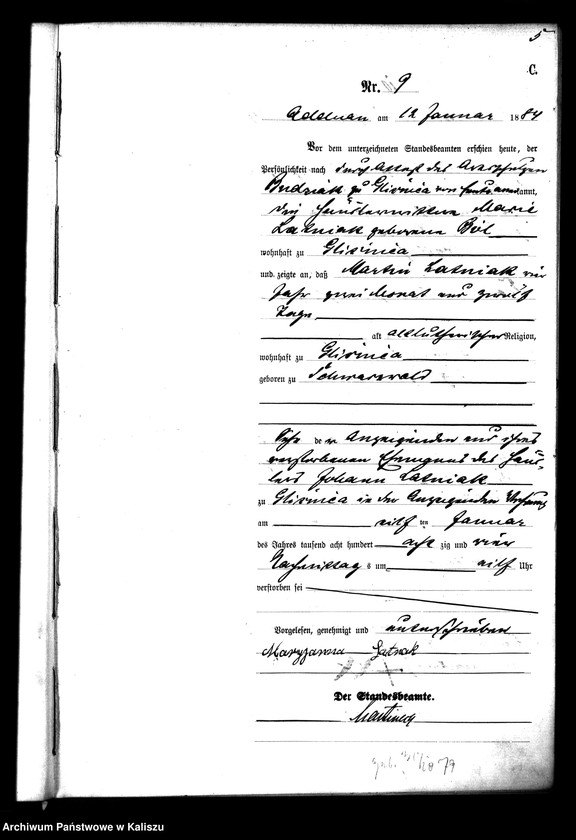 5
C.
Nr. 9
Adelnau am 12 Januar 1884
Vor dem unterzeichneten Standesbeamten erschien heute, der
Persönlichkeit nach durch Attest des Ortsschulzen
zu Glisnica von kannt,
die Häuslerwittwe Marie
Latniak geborene Böl
wohnhaft zu Glisnica
und zeigte an, daß Martin Latniak vier
Jahr zwei Monat und zwölf
Tage
alt altlutherischer Religion,
wohnhaft zu Glisnica
geboren zu Schwarzwald
Sohn der Anzeigenden und ihres
verstorbenen Ehemannes des Häus-
lers Johann Latniak
zu Glisnica in der Anzeigenden Wohnung
am eilf ten Januar
des Jahres tausend acht hundert acht zig und vier
Nachmittag s um eilf Uhr
verstorben sei
Vorgelesen, genehmigt und unterschrieben
Maryjanna Latniak
Der Standesbeamte.
79
Archiwum Państwowe w Kaliszu